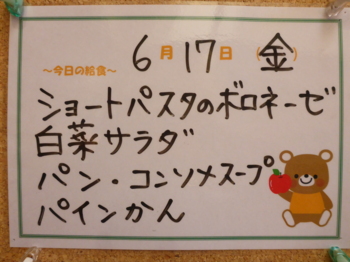 6月17日（金）
～今日の給食～
ショートパスタのボロネーゼ
白菜サラダ
パン・コンソメスープ
パインかん